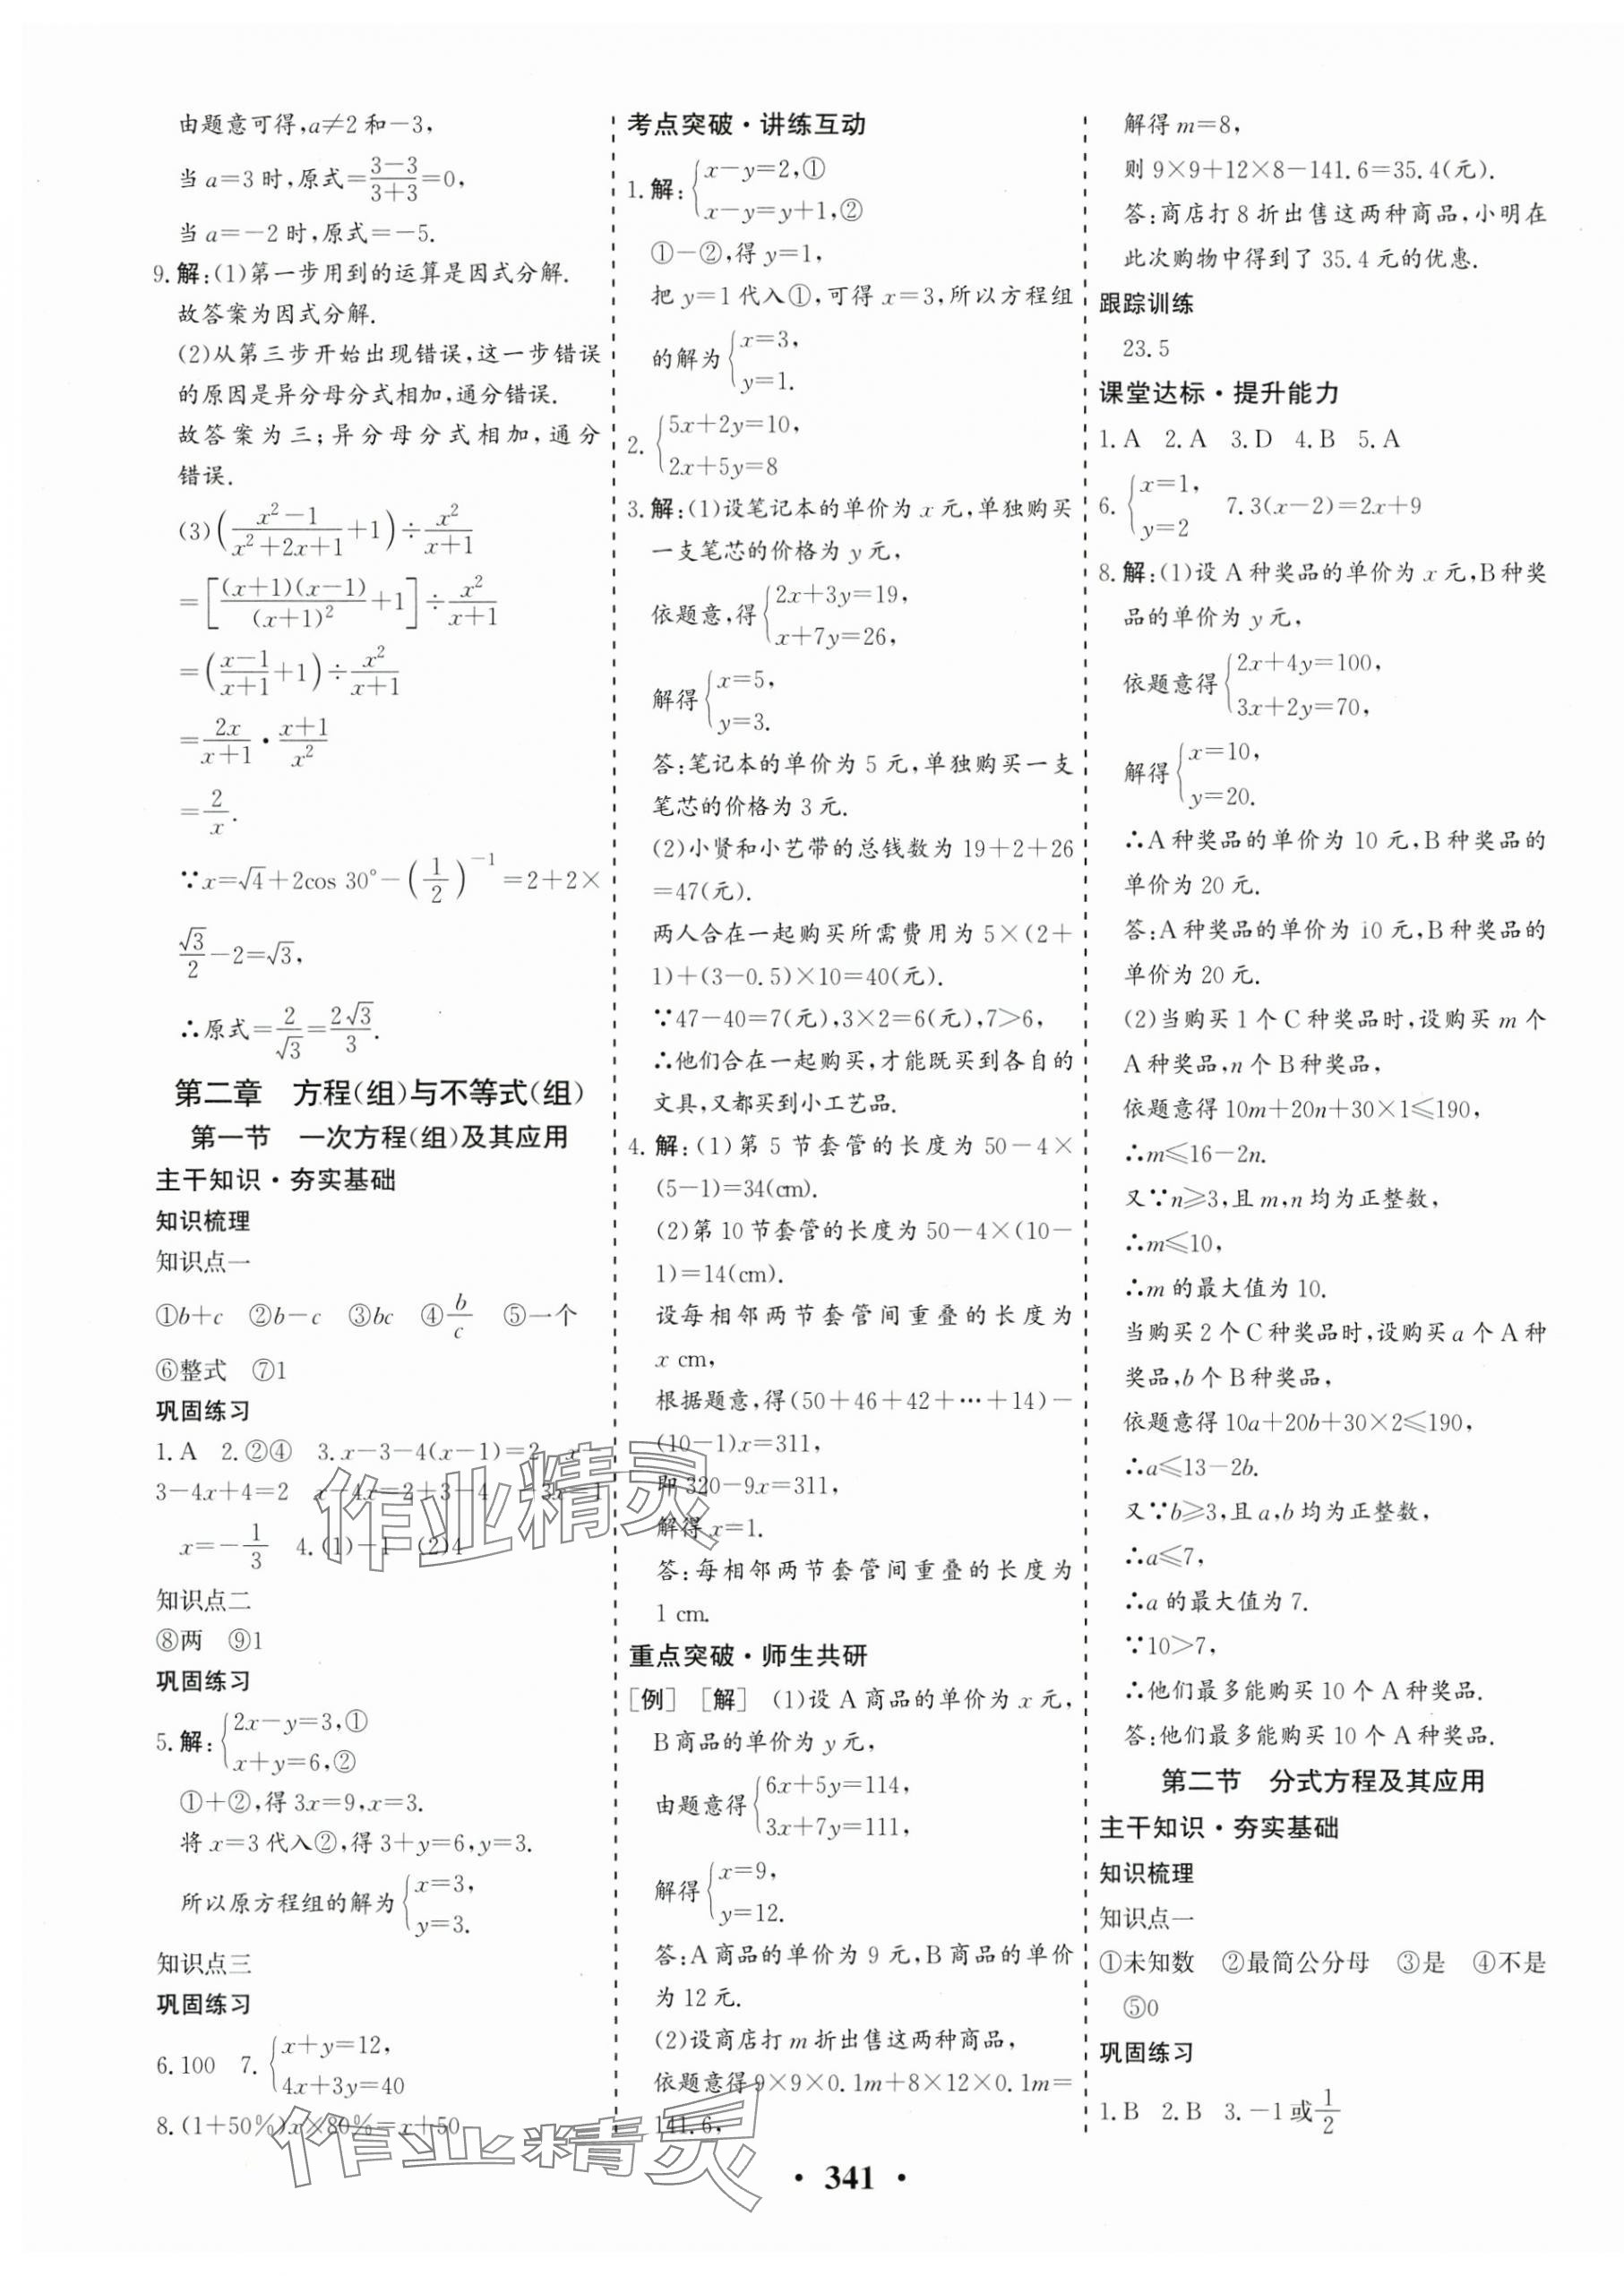 由题意可得,a≠2 和-3,
当 a=3 时,原式=\frac{3-3}{3+3}=0,
当 a=-2 时,原式=-5.
9.解:(1)第一步用到的运算是因式分解.
故答案为因式分解.
(2)从第三步开始出现错误,这一步错误
的原因是异分母分式相加,通分错误.
故答案为三;异分母分式相加,通分
错误.
(3)(\frac{x²-1}{x²+2x+1}+1)÷\frac{x²}{x+1}
=[\frac{(x+1)(x-1)}{(x+1)²}+1]÷\frac{x²}{x+1}
=(\frac{x-1}{x+1}+1)÷\frac{x²}{x+1}
=\frac{2x}{x+1}·\frac{x+1}{x²}
=\frac{2}{x}.
∵x=√4+2cos 30°-(\frac{1}{2})^{-1}=2+2×
\frac{√3}{2}-2=√3,
∴原式=\frac{2}{√3}=\frac{2√3}{3}.
第二章　方程(组)与不等式(组)
第一节　一次方程(组)及其应用
主干知识·夯实基础
知识梳理
知识点一
①b+c　②b-c　③bc　④\frac{b}{c}　⑤一个
⑥整式　⑦1
巩固练习
1.A　2.②④　3.x-3-4(x-1)=2　x-
3-4x+4=2　x-4x=2+3-4　-3x=1
x=-\frac{1}{3}　4.(1)-1　(2)4
知识点二
⑧两　⑨1
巩固练习
5.解:{2x-y=3,①
x+y=6,②
①+②,得 3x=9,x=3.
将 x=3 代入②,得 3+y=6,y=3.
所以原方程组的解为{x=3,
y=3.
知识点三
巩固练习
6.100　7.{x+y=12,
4x+3y=40
8.(1+50%)x×80%=x+50
考点突破·讲练互动
1.解:{x-y=2,①
x-y=y+1,②
①-②,得 y=1,
把 y=1 代入①,可得 x=3,所以方程组
的解为{x=3,
y=1.
2.{5x+2y=10,
2x+5y=8
3.解:(1)设笔记本的单价为 x 元,单独购买
一支笔芯的价格为 y 元,
依题意,得{2x+3y=19,
x+7y=26,
解得{x=5,
y=3.
答:笔记本的单价为 5 元,单独购买一支
笔芯的价格为 3 元.
(2)小贤和小艺带的总钱数为 19+2+26
=47(元).
两人合在一起购买所需费用为 5×(2+
1)+(3-0.5)×10=40(元).
∵47-40=7(元),3×2=6(元),7>6,
∴他们合在一起购买,才能既买到各自的
文具,又都买到小工艺品.
4.解:(1)第 5 节套管的长度为 50-4×
(5-1)=34(cm).
(2)第 10 节套管的长度为 50-4×(10-
1)=14(cm).
设每相邻两节套管间重叠的长度为
x cm,
根据题意,得(50+46+42+…+14)-
(10-1)x=311,
即 320-9x=311,
解得 x=1.
答:每相邻两节套管间重叠的长度为
1 cm.
重点突破·师生共研
[例]　[解]　(1)设 A 商品的单价为 x 元,
B 商品的单价为 y 元,
由题意得{6x+5y=114,
3x+7y=111,
解得{x=9,
y=12.
答:A 商品的单价为 9 元,B 商品的单价
为 12 元.
(2)设商店打 m 折出售这两种商品,
依题意得 9×9×0.1m+8×12×0.1m=
141.6,
解得 m=8,
则 9×9+12×8-141.6=35.4(元).
答:商店打 8 折出售这两种商品,小明在
此次购物中得到了 35.4 元的优惠.
跟踪训练
23.5
课堂达标·提升能力
1.A　2.A　3.D　4.B　5.A
6.{x=1,
y=2　7.3(x-2)=2x+9
8.解:(1)设 A 种奖品的单价为 x 元,B 种奖
品的单价为 y 元,
依题意得{2x+4y=100,
3x+2y=70,
解得{x=10,
y=20.
∴A 种奖品的单价为 10 元,B 种奖品的
单价为 20 元.
答:A 种奖品的单价为 i0 元,B 种奖品的
单价为 20 元.
(2)当购买 1 个 C 种奖品时,设购买 m 个
A 种奖品,n 个 B 种奖品,
依题意得 10m+20n+30×1≤190,
∴m≤16-2n.
又∵n≥3,且 m,n 均为正整数,
∴m≤10,
∴m 的最大值为 10.
当购买 2 个 C 种奖品时,设购买 a 个 A 种
奖品,b 个 B 种奖品,
依题意得 10a+20b+30×2≤190,
∴a≤13-2b.
又∵b≥3,且 a,b 均为正整数,
∴a≤7,
∴a 的最大值为 7.
∵10>7,
∴他们最多能购买 10 个 A 种奖品.
答:他们最多能购买 10 个 A 种奖品.
第二节　分式方程及其应用
主干知识·夯实基础
知识梳理
知识点一
①未知数　②最简公分母　③是　④不是
⑤0
巩固练习
1.B　2.B　3.-1 或\frac{1}{2}
作业精灵
作业精灵
· 341 ·